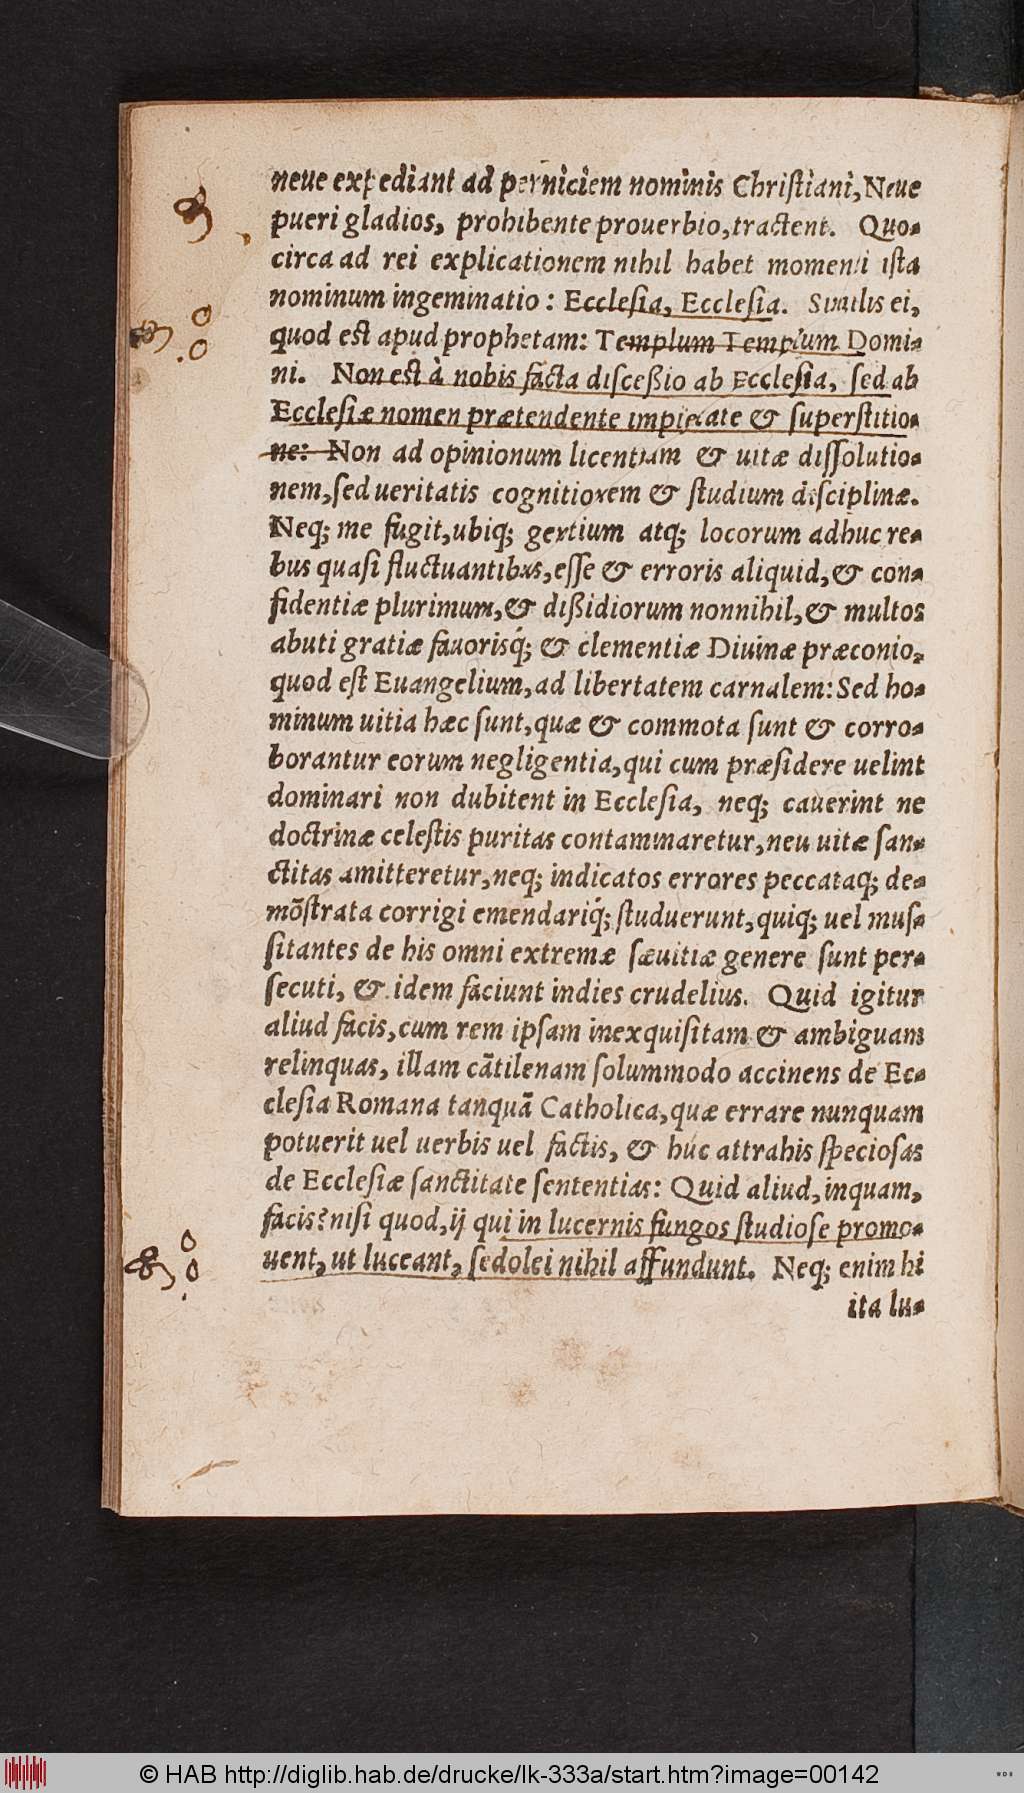 neue expediant ad perniciem nominis Christiani, Neue
pueri gladios, prohibente prouerbio, tractent. Quo-
circa ad rei explicationem nihil habet momenti ista
nominum ingeminatio: Ecclesia, Ecclesia. Similis ei,
quod est apud prophetam: Templum Templum Domi-
ni. Non est à nobis facta disceßio ab Ecclesia, sed ab
Ecclesiæ nomen prætendente impietate & superstitio-
ne: Non ad opinionum licentiam & uitæ dissolutio-
nem, sed ueritatis cognitionem & studium disciplinæ.
Neq; me fugit, ubiq; gentium atq; locorum adhuc re-
bus quasi fluctuantibus, esse & erroris aliquid, & con-
fidentiæ plurimum, & dißidiorum nonnihil, & multos
abuti gratiæ fauorisq́; & clementiæ Diuinæ præconio,
quod est Euangelium, ad libertatem carnalem: Sed ho-
minum uitia hæc sunt, quæ & commota sunt & corro-
borantur eorum negligentia, qui cum præsidere uelint
dominari non dubitent in Ecclesia, neq; cauerint ne
doctrinæ celestis puritas contaminaretur, neu uitæ san-
ctitas amitteretur, neq; indicatos errores peccataq; de-
mõstrata corrigi emendariq́; studuerunt, quiq; uel mus-
sitantes de his omni extremæ sæuitiæ genere sunt per-
secuti, & idem faciunt indies crudelius. Quid igitur
aliud facis, cum rem ipsam inexquisitam & ambiguam
relinquas, illam cãtilenam solummodo accinens de Ec-
clesia Romana tanquã Catholica, quæ errare nunquam
potuerit uel uerbis uel factis, & huc attrahis speciosas
de Ecclesiæ sanctitate sententias: Quid aliud, inquam,
facis? nisi quod, ij qui in lucernis fungos studiose promo-
uent, ut luceant, sed olei nihil affundunt. Neq; enim hi
ita lu-
© HAB http://diglib.hab.de/drucke/lk-333a/start.htm?image=00142